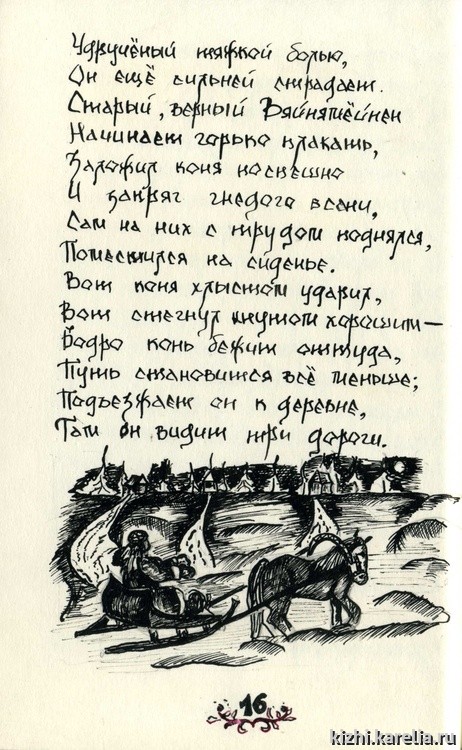 Удручёный тяжкой болью,
Он ещё сильней страдает.
Старый, верный Вяйнямёйнен
Начинает горько плакать,
Заложил коня поспешно
И запряг гнедого в сани,
Сам на них с трудом поднялся,
Поместился на сиденье.
Вот коня хлыстом ударил,
Вот стегнул кнутом хорошим—
Бодро конь бежит оттуда,
Путь становится всё меньше;
Подъезжает он к деревне,
Там он видит три дороги.
16
kizhi.karelia.ru